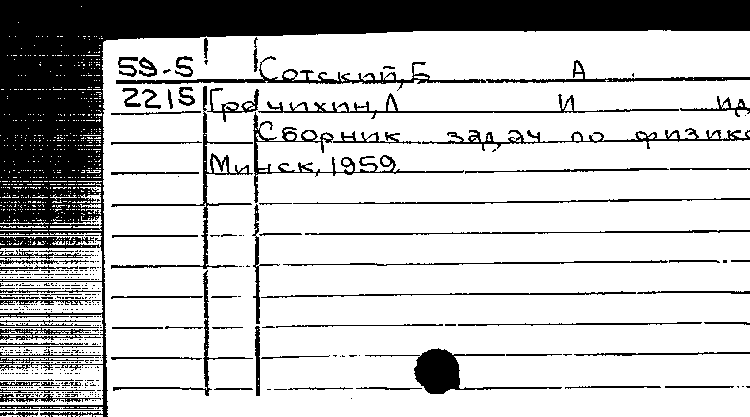 59-5 Сотский, Б А
2215 Гречихин, Л И ид
Сборник задач по физике
Минск, 1959.